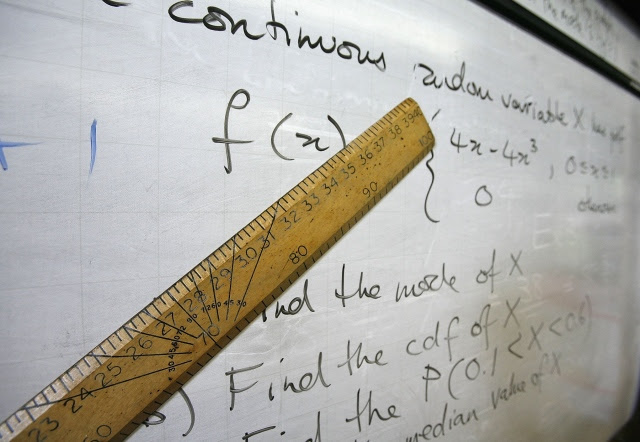 continuous random variable X has pdf
f(x)
4x - 4x³, 0 ≤ x ≤ 1
0 otherwise
Find the mode of X
Find the cdf of X
Find the P(0.1 < X < 0.6)
median value of X
+ 1
23 24 25 26 27 28 29 30 31 32 33 34 35 36 37 38 39
70 80 90 100